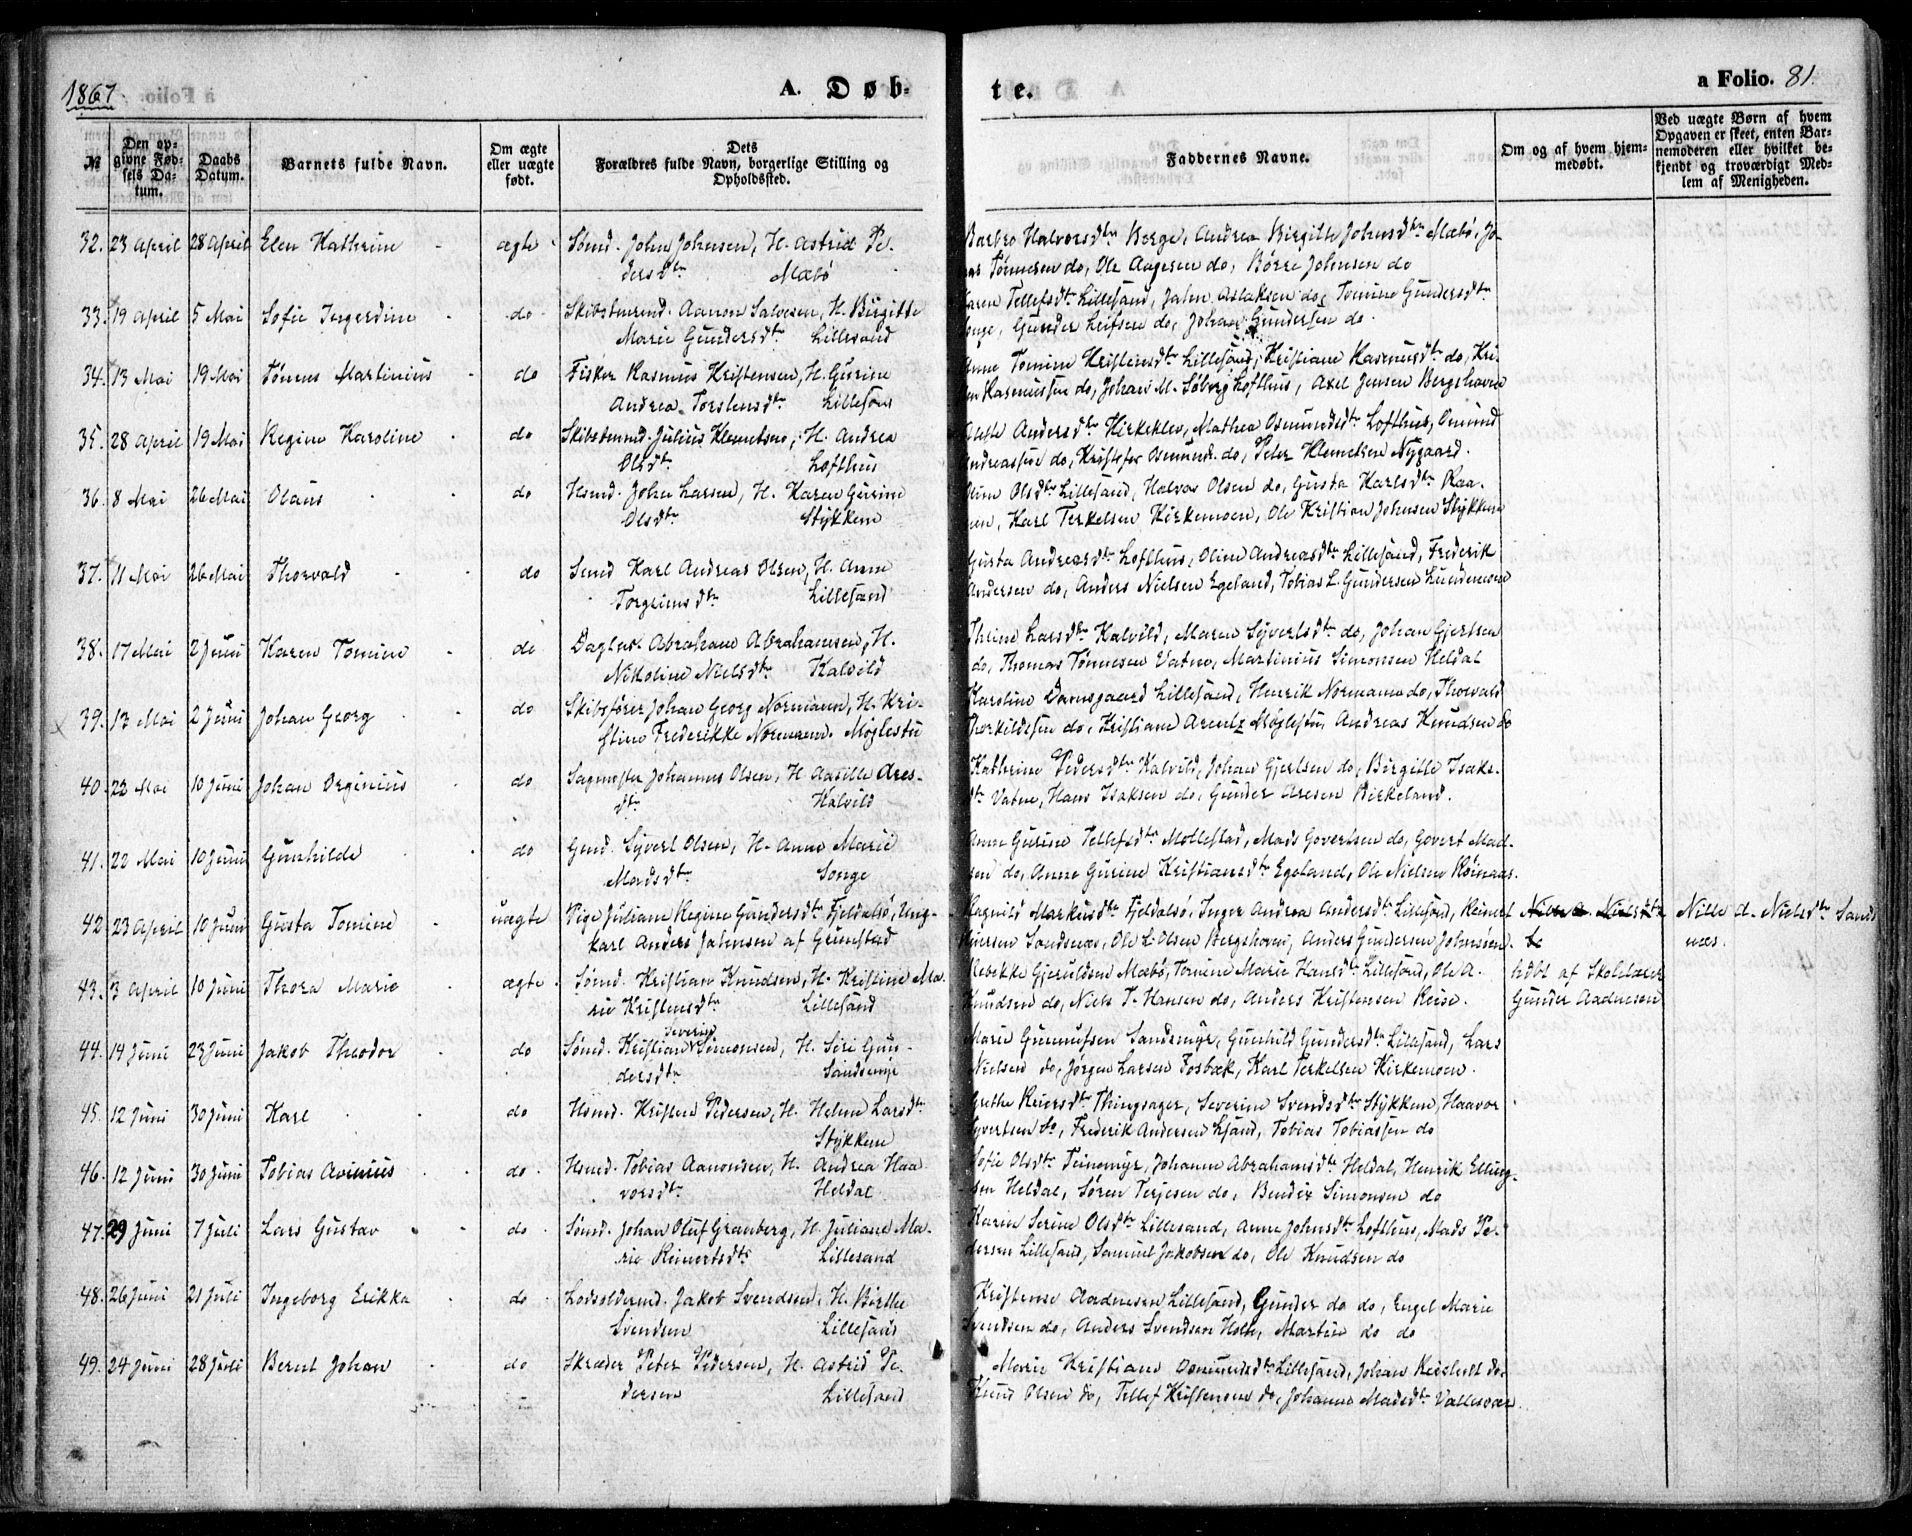 1867.
A. Døb-
te.
a Folio. 81.
№
Den op-
givne Fød-
sels Da-
tum.
Daabs
Datum.
Barnets fulde Navn.
Om ægte
eller uægte
født.
Dets
Forældres fulde Navn, borgerlige Stilling og
Opholdssted.
Faddernes Navne.
Om og af hvem hjem-
medøbt.
Ved uægte Børn af hvem
Opgaven er skeet, enten Bar-
nemoderen eller hvilket be-
kjendt og troværdigt Med-
lem af Menigheden.
32. 23 April 28 April Elen Kathrine ægte Sømd. John Johnsen, H. Astrid Pe-
dersdtr Mæbø
Barbro Halvorsdtr Berge, Andrea Birgitte Johnsdtr Mæbø, Jo-
Tønnesen do, Ole Aagesen do, Børre Johnsen do
33. 19 April 5 Mai Sofie Ingerdine do Skibstmrmd. Aanon Salvesen, H. Birgitte
Marie Gundersdtr Lillesand
Karen Tellefsdtr Lillesand, John Aslaksen do, Tomine Gundersdtr
Gunder Leifsen do, Johan Gundersen do
34. 13 Mai 19 Mai Tønnes Martinius do Fisker Rasmus Kristensen, H. Gurine
Andrea Torstensdtr Lillesand
Anne Tomine Kristensdtr Lillesand, Kristiane Rasmusdtr do, Kri-
Rasmussen do, Johan M. Søberg Lofthus, Axel Jensen Bergshaven
35. 28 April 19 Mai Regine Karoline do Skibstmrmd. Julius Klemetsen, H. Andrea
Olsdtr Lofthus
Andersdtr Kirkeklev, Mathea Osmundsdtr Lofthus, Osmund
Andreassen do, Kristofer Osmunds. do, Peter Klemetsen Nygaard.
36. 8 Mai 26 Mai Olaus do Hsmd. John Larsen, H. Karen Gurine
Olsdtr Stykkene
Olsdtr Lillesand, Halvor Olsen do, Gusta Karlsdtr Raa-
en, Karl Terkelsen Kirkemoen, Ole Kristian Johnsen Stykkene
37. 11 Mai 26 Mai Thorvald do Smed Karl Andreas Olsen, H. Anne
Torgrimsdtr Lillesand
Gusta Andreasdtr Lofthus, Oline Andreasdtr Lillesand, Frederik
Andersen do, Anders Nielsen Egeland, Tobias L. Gundersen Lundemoen
38. 17 Mai 2 Juni Karen Tomine do Daglnr. Abraham Abrahamsen, H.
Nikoline Nielsdtr Kalvild
Thrine Larsdtr Kalvild, Maren Syvertsdtr do, Johan Gjertsen
do, Thomas Tønnesen Vatne, Martinius Simonsen Heldal
39. 13 Mai 2 Juni Johan Georg do Skibsfører Johan Georg Normann, H. Kri-
stine Frederikke Normann. Møglestu
Karoline Dannsgaard Lillesand, Henrik Normann do, Thorvald
Therkildsen do, Kristiane Arentz Møglestu, Andreas Knudsen do
40. 22 Mai 10 Juni Johan Orginius do Sagmester Johannes Olsen, H. Aasille Ares-
dtr Kalvild
Kathrine Pedersdtr Kalvild, Johan Gjertsen do, Birgitte Isaks-
dtr Vatne, Hans Isaksen do, Gunder Aresen Birkeland.
41. 22 Mai 10 Juni Gunhilde do Gmd. Syvert Olsen, H. Anne Marie
Madsdtr Songe
Anne Gurine Tellefsdtr Mollestad, Mads Govertsen do, Govert Mad-
sen do, Anne Gurine Kristiansdtr Egeland, Ole Nielsen Røinaas.
42. 23 April 10 Juni Gusta Tomine uægte Pige Juliane Regine Gundersdtr Fjeldalsø, Ung-
karl Anders Johnsen af Grimstad
Ragnild Markusdtr Fjeldalsø, Inger Andrea Andersdtr Lillesand, Reinert
Sandsnæs, Ole L. Olsen Bergshaven, Anders Gundersen Johnsøen.
Nille d. Nielsdtr Sands
næs.
43. 3 April 10 Juni Thora Marie ægte Sømd. Kristian Knudsen, H. Kristine Ma-
rie Kristensdtr Lillesand
Rebekke Gjeruldsen Mæbø, Tomine Marie Hansdtr Lillesand, Ole A.
Knudsen do, Niels T. Hansen do, Anders Kristensen Reise.
hdbt af Skolelærer
Gunder Aadnesen
44. 14 Juni 23 Juni Jakob Theodor do Sømd. Kristian Severin Simonsen, H. Siri Gun-
dersdtr Sandsmyr
Marie Gunnufsen Sandsmyr, Gunhild Gundersdtr Lillesand, Lars
Nielsen do, Jørgen Larsen Fosbæk, Karl Terkelsen Kirkemoen.
45. 12 Juni 30 Juni Karl do Hsmd. Kristen Pedersen, H. Helene Larsdtr
Stykkene
Grethe Reiersdtr Thingsager, Severine Svendsdtr Stykkene, Haavor
Syvertsen do, Frederik Andersen Lsand, Tobias Tobiassen do
46. 12 Juni 30 Juni Tobias Avinius do Hsmd. Tobias Aanonsen, H. Andrea Haa
vorsdtr Heldal
Sofie Olsdtr Teinemyr, Johanne Abrahamsdtr Heldal, Henrik Elling-
sen Heldal, Søren Terjesen do, Bendix Simonsen do
47. 29 Juni 7 Juli Lars Gustav do Sømd. Johan Oluf Granberg, H. Juliane Ma-
rie Reinertsdtr Lillesand
Karin Serine Olsdtr Lillesand, Anne Johnsdtr Lofthus, Mads Pe-
dersen Lillesand, Samuel Jakobsen do, Ole Knudsen do
48. 26 Juni 21 Juli Ingeborg Erikka do Lodsoldermd. Jakob Svendsen, H. Birthe
Svendsen Lillesand
Kristense Aadnesen Lillesand, Gunder do do, Engel Marie
Svendsen do, Anders Svendsen Holte, Martin do do
49. 24 Juni 28 Juli Bernt Johan do Skræder Peter Pedersen, H. Astrid Pe-
dersen Lillesand
Marie Kristiane Osmundsdtr Lillesand, Johan Reistedt do,
Knud Olsen do, Tellef Kristensen do, Johanne Madsdtr Vallesvær